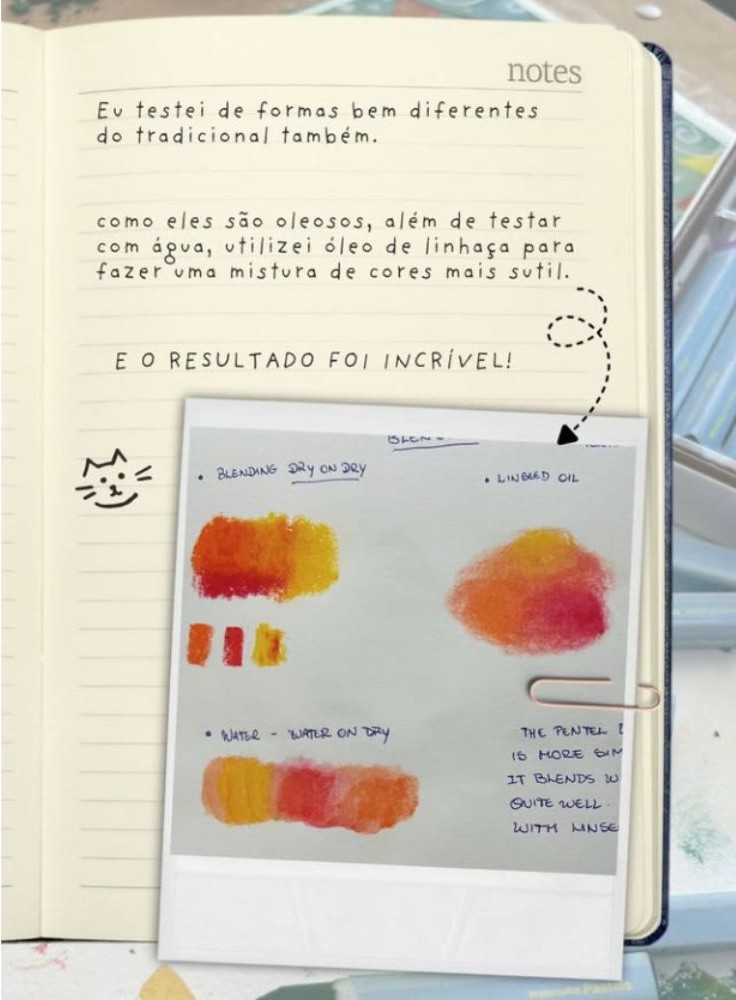 notes
Eu testei de formas bem diferentes
do tradicional também.
como eles são oleosos, além de testar
com água, utilizei óleo de linhaça para
fazer uma mistura de cores mais sutil.
E O RESULTADO FOI INCRÍVEL!
• BLENDING DRY ON DRY
• LINSEED OIL
• WATER - WATER ON DRY
THE PENTEL
IS MORE
IT BLENDS
QUITE WELL.
WITH